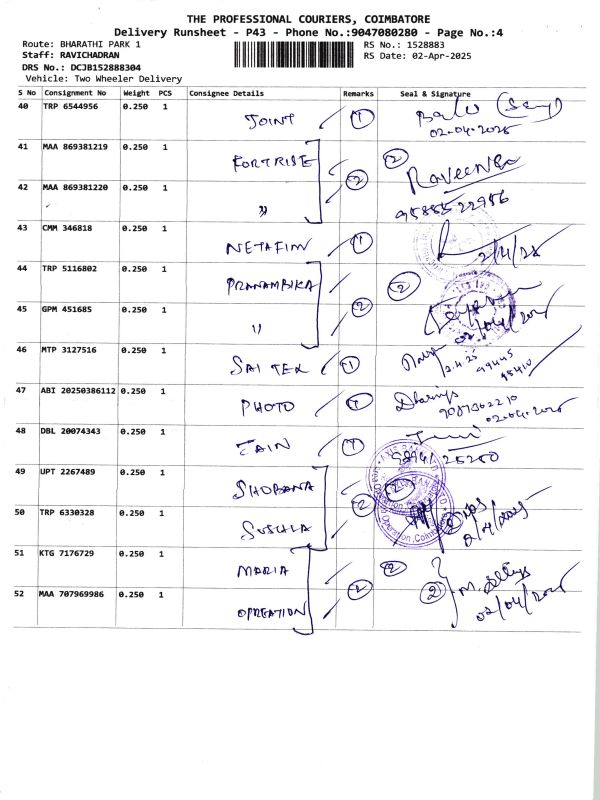 THE PROFESSIONAL COURIERS, COIMBATORE
Delivery Runsheet - P43 - Phone No.:9047080280 - Page No.:4
Route: BHARATHI PARK 1
RS No.: 1528883
Staff: RAVICHADRAN
RS Date: 02-Apr-2025
DRS No.: DCJB152888304
Vehicle: Two Wheeler Delivery
S No Consignment No Weight PCS Consignee Details Remarks Seal & Signature
40 TRP 6544956 0.250 1 JOINT 1
02.04.2025
41 MAA 869381219 0.250 1 FORTRISE 2
Raveendra
42 MAA 869381220 0.250 1 " 2
9585522956
43 CMM 346818 0.250 1 NETAFIM 1
2/4/25
44 TRP 5116802 0.250 1 PRANAMBIKA 2
45 GPM 451685 0.250 1 " 2
02/04/2025
46 MTP 3127516 0.250 1 SAI TEX 1
2.4.25
47 ABI 20250386112 0.250 1 PHOTO 1
02.04.2025
48 DBL 20074343 0.250 1 JAIN 1
98941 25250
49 UPT 2267489 0.250 1 SHOBANA 2
50 TRP 6330328 0.250 1 SUSHLA 2
2/4/2025
51 KTG 7176729 0.250 1 MARIA 2
52 MAA 707969986 0.250 1 OPREATION 2 2
02/04/2025